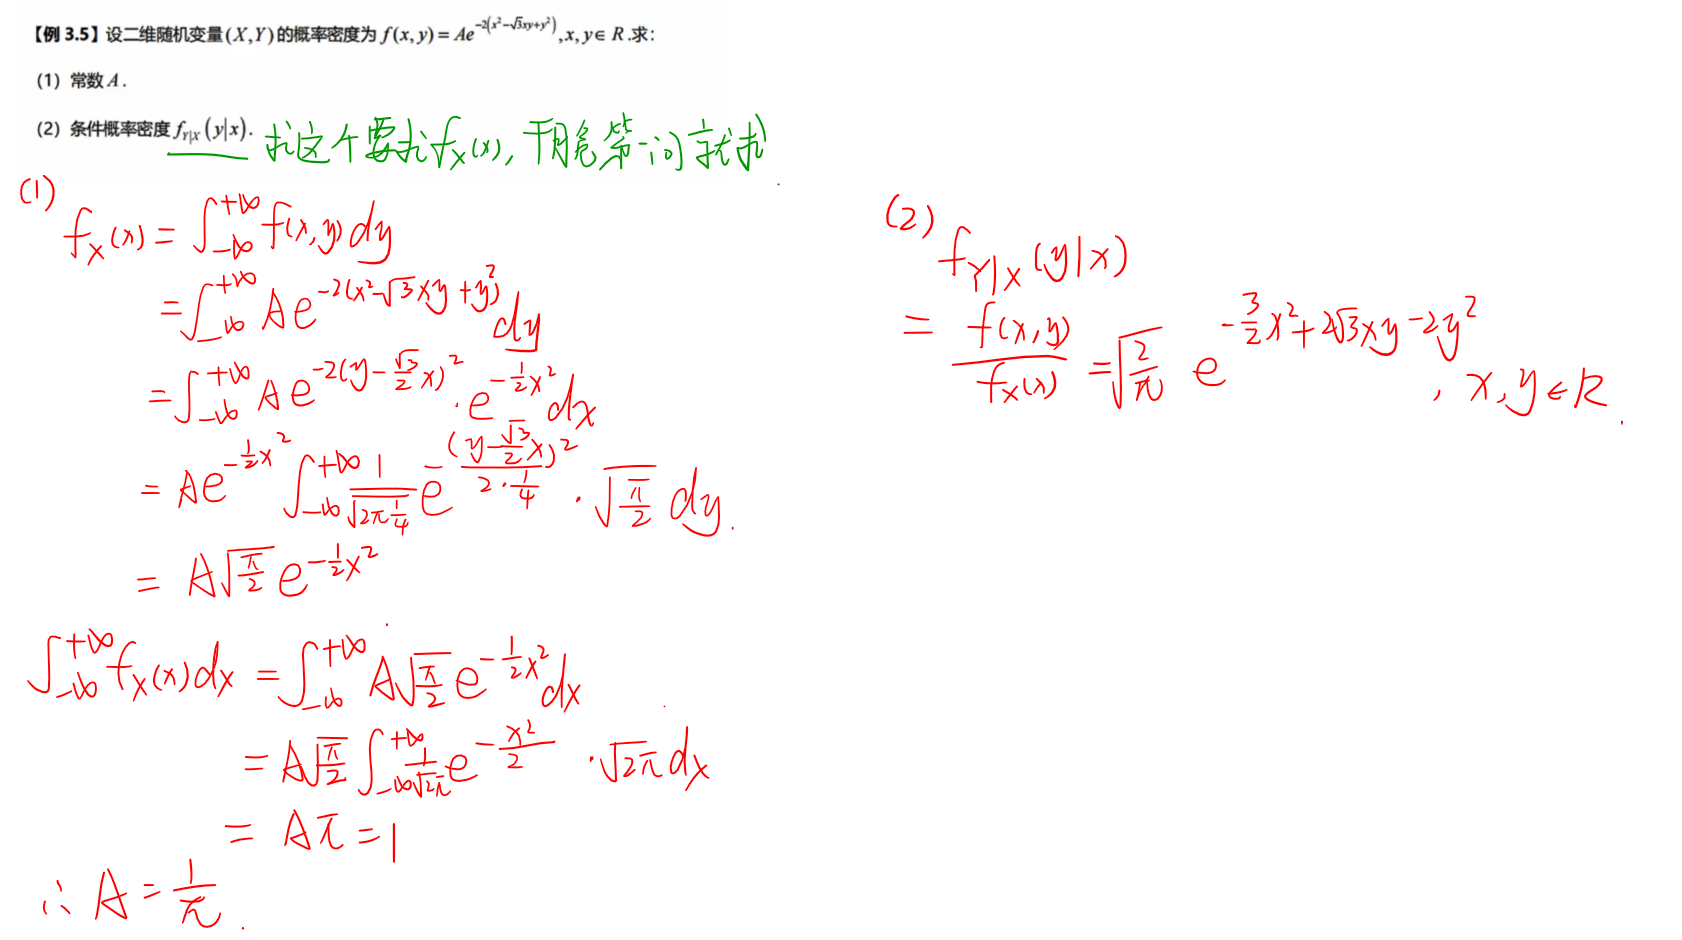 【例 3.5】设二维随机变量(X,Y)的概率密度为 f(x,y)=Ae^{-2(x²-√3xy+y²)},x,y∈R.求:
(1) 常数A.
(2) 条件概率密度 f_{Y|X}(y|x).
求这个要求f_X(x),干脆第一问就求
(1)
f_X(x)=∫_{-∞}^{+∞} f(x,y)dy
=∫_{-∞}^{+∞} Ae^{-2(x²-√3xy+y²)}dy
=∫_{-∞}^{+∞} Ae^{-2(y-\frac{√3}{2}x)²}·e^{-\frac{1}{2}x²}dx
=Ae^{-\frac{1}{2}x²}∫_{-∞}^{+∞} \frac{1}{\sqrt{2π\frac{1}{4}}}e^{-\frac{(y-\frac{√3}{2}x)²}{2·\frac{1}{4}}}·\sqrt{\frac{π}{2}}dy.
=A\sqrt{\frac{π}{2}}e^{-\frac{1}{2}x²}
∫_{-∞}^{+∞} f_X(x)dx=∫_{-∞}^{+∞} A\sqrt{\frac{π}{2}}e^{-\frac{1}{2}x²}dx
=A\sqrt{\frac{π}{2}}∫_{-∞}^{+∞} \frac{1}{\sqrt{2π}}e^{-\frac{x²}{2}}·\sqrt{2π}dx
=Aπ=1
∴A=\frac{1}{π}.
(2)
f_{Y|X}(y|x)
=\frac{f(x,y)}{f_X(x)}=\sqrt{\frac{2}{π}}e^{-\frac{3}{2}x²+2√3xy-2y²},x,y∈R.